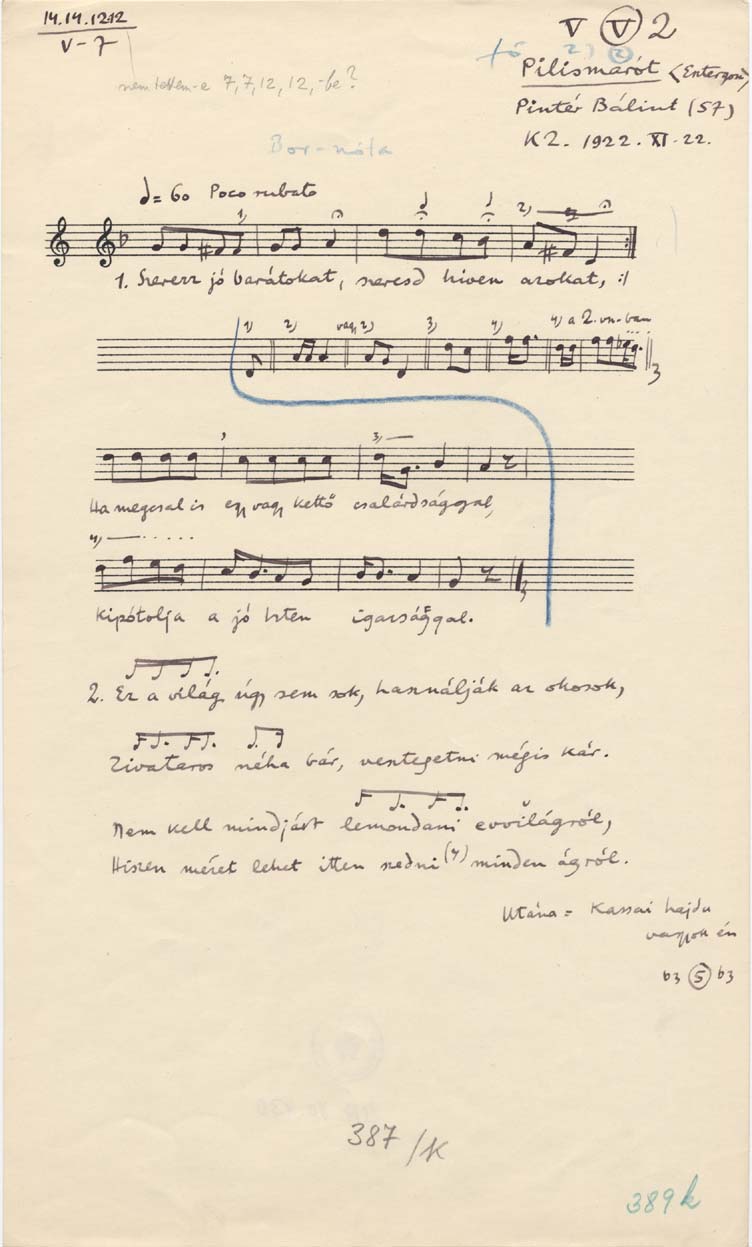 14.14.1212
V - 7
nem tettem-e 7,7,12,12,-be?
V V 2
fő 2) 2
Pilismarót (Esztergom)
Pintér Bálint (57)
KZ. 1922. XI. 22.
Bor-nóta
= 60 Poco rubato
1) 2)
1. Szerezz jó barátokat, szeresd hiven azokat, :/
1) 2) vagy 2) 3) 4) 4) a 2. vsz-ban
3)
Ha megcsal is egy vagy kettő csalárdsággal,
4)
Kipótolja a jó Isten igazsággal.
2. Ez a világ úgy sem sok, használják az okosok,
Zivataros néha bár, vesztegetni mégis kár.
Nem kell mindjárt lemondani evvilágról,
Hiszen mézet lehet itten szedni (4) minden ágról.
Utána = Kassai hajdu
vagyok én
b3 5 b3
387/K
389k